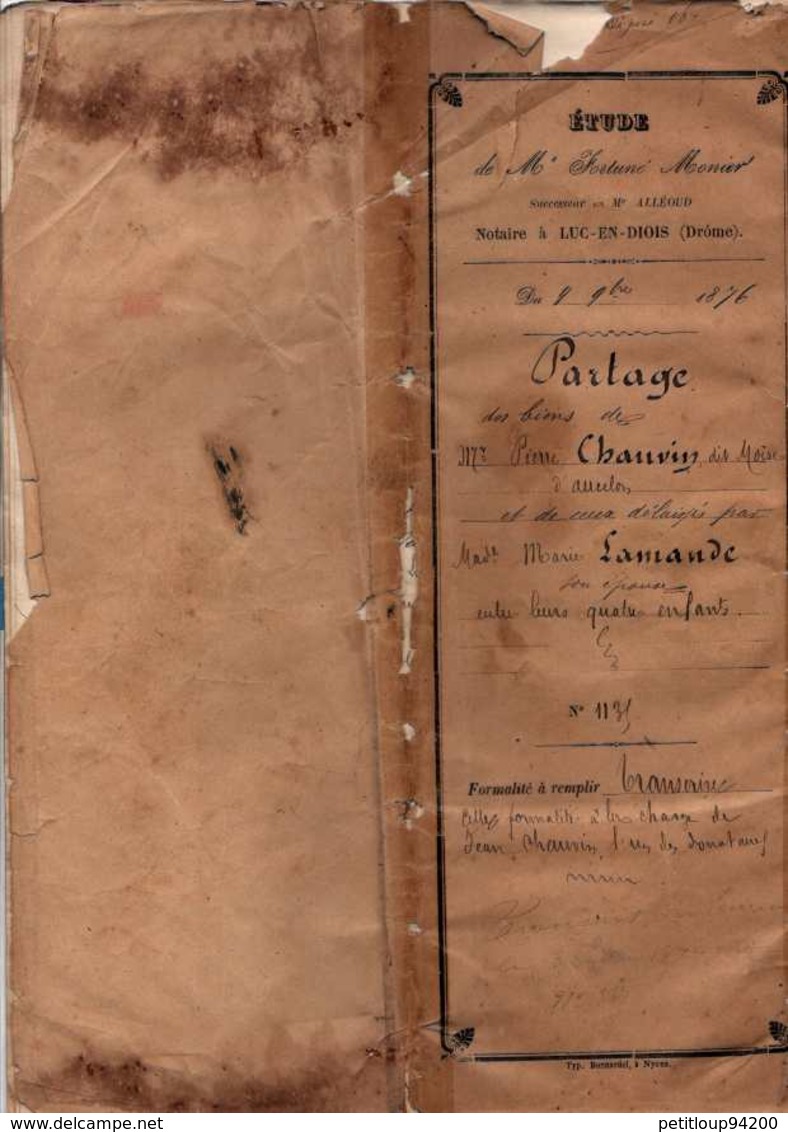 ÉTUDE
de Me Fortuné Monier
Successeur de Me ALLÉOUD
Notaire à LUC-EN-DIOIS (Drôme).
Du 9 9bre 1876
Partage
des biens de
Mr Pierre Chauvin dit Moïse
d'aucelon
et de ceux délaissés par
Made Marie Lamande
son épouse
entre leurs quatre enfants.
No 1135
Formalité à remplir Transcrire
Cette formalité à la charge de
Jean Chauvin, l'un des donataires
Typ. Bonnardel, à Nyons.
petitloup94200